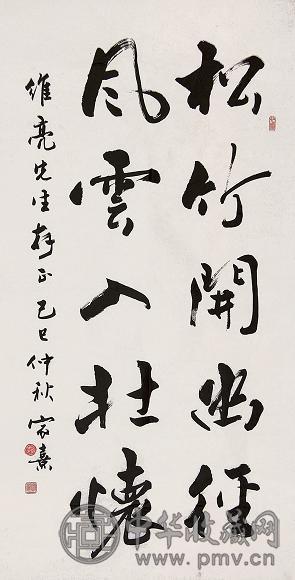 松竹開幽徑
風雲入壯懷
維亮先生存正 己巳仲秋 家熹
中华收藏网
www.pmv.cn